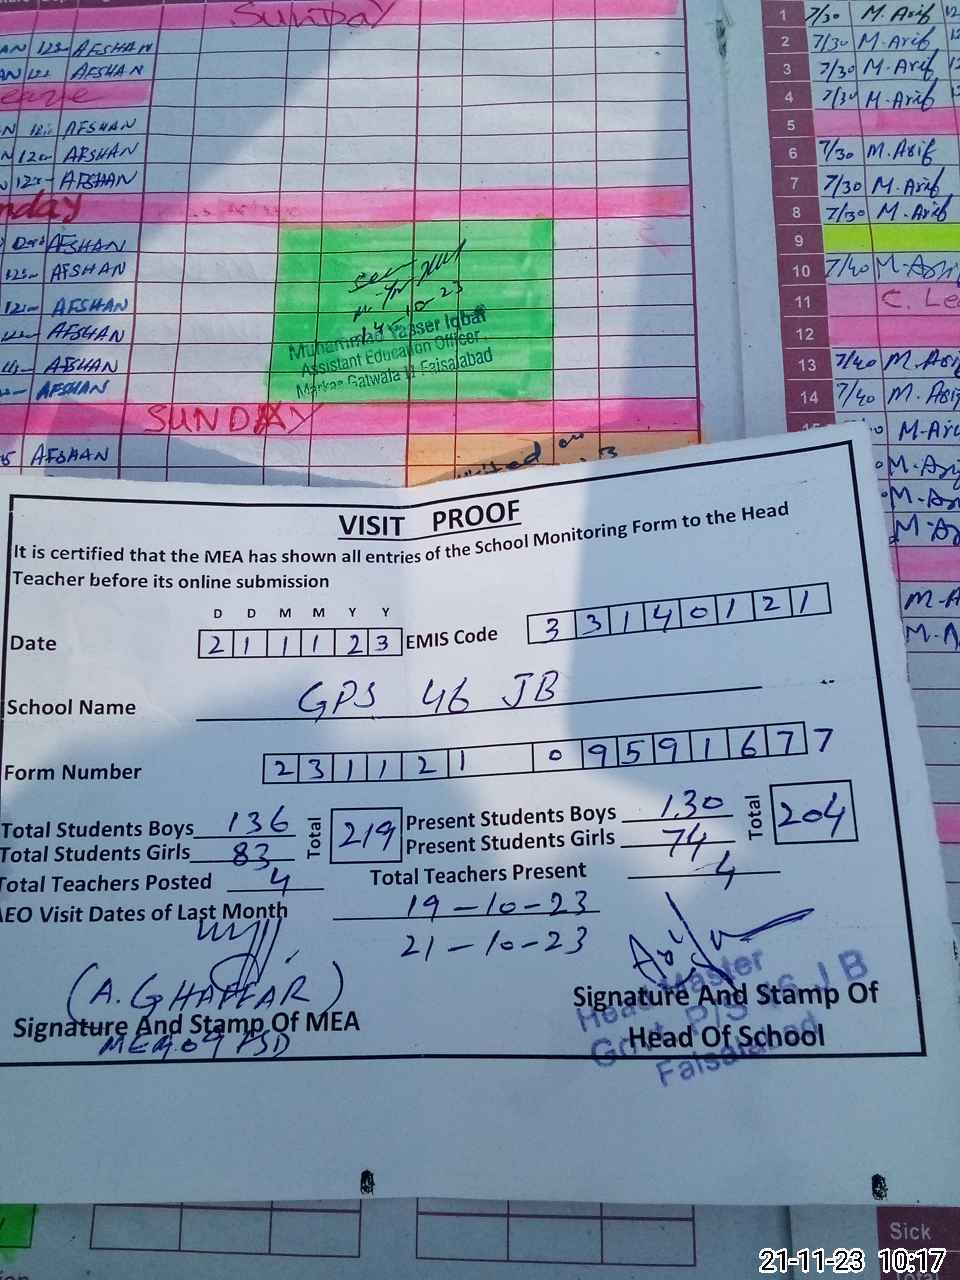 SUNDAY
AFSHAN
AFSHAN
AFSHAN
AFSHAN
AFSHAN
AFSHAN
AFSHAN
AFSHAN
AFSHAN
AFSHAN
AFSHAN
14-10-23
Muhammad Yasser Iqbal
Assistant Education Officer
Markaz Gatwala Faisalabad
SUNDAY
AFSHAN
1 7/30 M. Arif
2 7/30 M. Arif
3 7/30 M. Arif
4 7/30 M. Arif
5
6 7/30 M. Arif
7 7/30 M. Arif
8 7/30 M. Arif
9
10 7/40 M. Arif
11 C. Le
12
13 7/40 M. Arif
14 7/40 M. Arif
VISIT PROOF
It is certified that the MEA has shown all entries of the School Monitoring Form to the Head
Teacher before its online submission
D D M M Y Y
Date 2 1 1 1 2 3 EMIS Code 3 3 1 4 0 1 2 1
School Name GPS 46 JB
Form Number 2 3 1 1 2 1 0 9 5 9 1 6 7 7
Total Students Boys 136 Total 219 Present Students Boys 130 Total 204
Total Students Girls 83 Present Students Girls 74
Total Teachers Posted 4 Total Teachers Present 4
AEO Visit Dates of Last Month 19-10-23
21-10-23
(A. GHAFFAR)
Signature And Stamp Of MEA
MEA 09 FSD
Head Master
Govt. P/S 46 J B
Faisalabad
Signature And Stamp Of
Head Of School
Sick
21-11-23 10:17